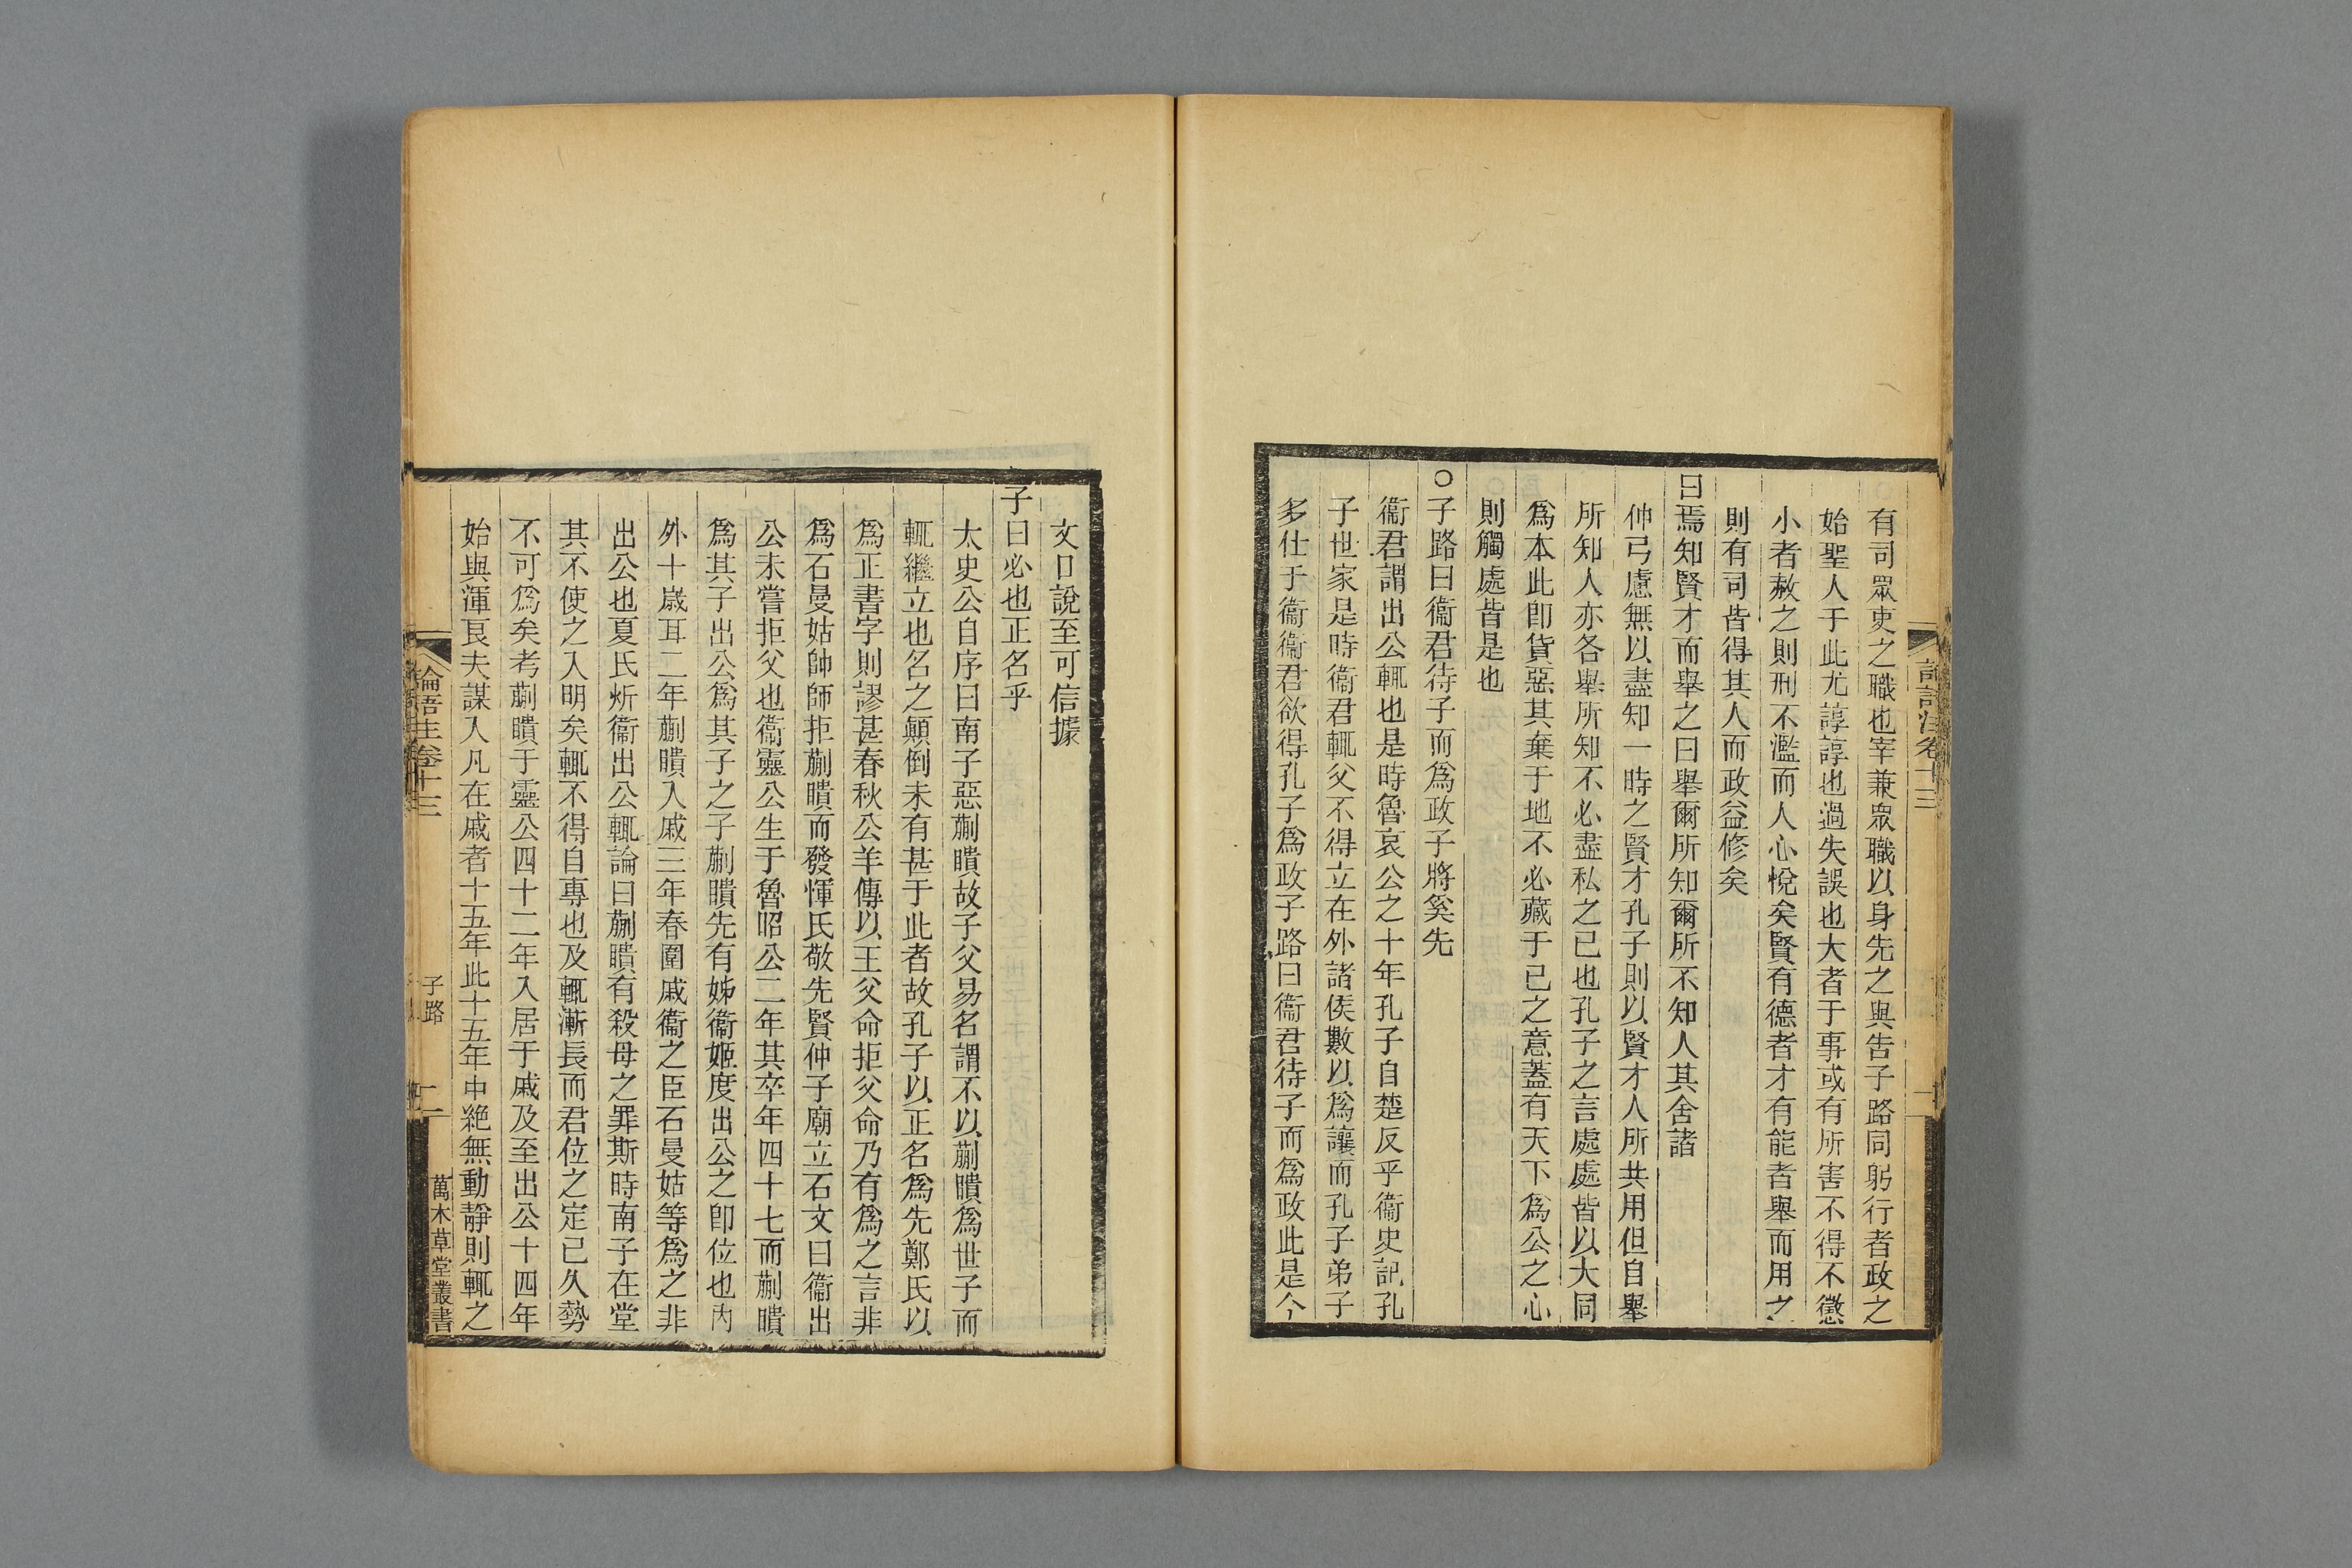 論語注卷十三
有司眾吏之職也宰兼衆職以身先之與告子路同躬行者政之
始聖人于此尤諄諄也過失誤也大者于事或有所害不得不懲
小者赦之則刑不濫而人心悅矣賢有德者才有能者舉而用之
則有司皆得其人而政益修矣
曰焉知賢才而舉之曰舉爾所知爾所不知人其舍諸
仲弓慮無以盡知一時之賢才孔子則以賢才人所共用但自舉
所知人亦各舉所知不必盡私之已也孔子之言處處皆以大同
爲本此卽貨惡其棄于地不必藏于己之意蓋有天下爲公之心
則觸處皆是也
○子路曰衞君待子而爲政子將奚先
衞君謂出公輒也是時魯哀公之十年孔子自楚反乎衞史記孔
子世家是時衞君輒父不得立在外諸侯數以爲讓而孔子弟子
多仕于衞衞君欲得孔子爲政子路曰衞君待子而爲政此是今
文口說至可信據
子曰必也正名乎
太史公自序曰南子惡蒯聵故子父易名謂不以蒯聵爲世子而
輒繼立也名之顛倒未有甚于此者故孔子以正名爲先鄭氏以
爲正書字則謬甚春秋公羊傳以王父命拒父命乃有爲之言非
爲石曼姑帥師拒蒯聵而發惲氏敬先賢仲子廟立石文曰衞出
公未嘗拒父也衞靈公生于魯昭公二年其卒年四十七而蒯聵
爲其子出公爲其子之子蒯聵先有姊衞姬度出公之卽位也內
外十歲耳二年蒯聵入戚三年春圍戚衞之臣石曼姑等爲之非
出公也夏氏炘衞出公輒論曰蒯聵有殺母之罪斯時南子在堂
其不使之入明矣輒不得自專也及輒漸長而君位之定已久勢
不可爲矣考蒯聵于靈公四十二年入居于戚及至出公十四年
始與渾良夫謀入凡在戚者十五年此十五年中絶無動靜則輒之
論語注卷十三
子路
二
萬木草堂叢書